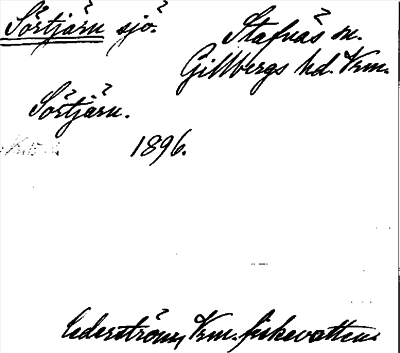 Sörtjärn sjö.
Stafnäs sn.
Gillbergs hd. Vrm.
Sörtjärn.
1896.
Cederström, Vrm. fiskevatten